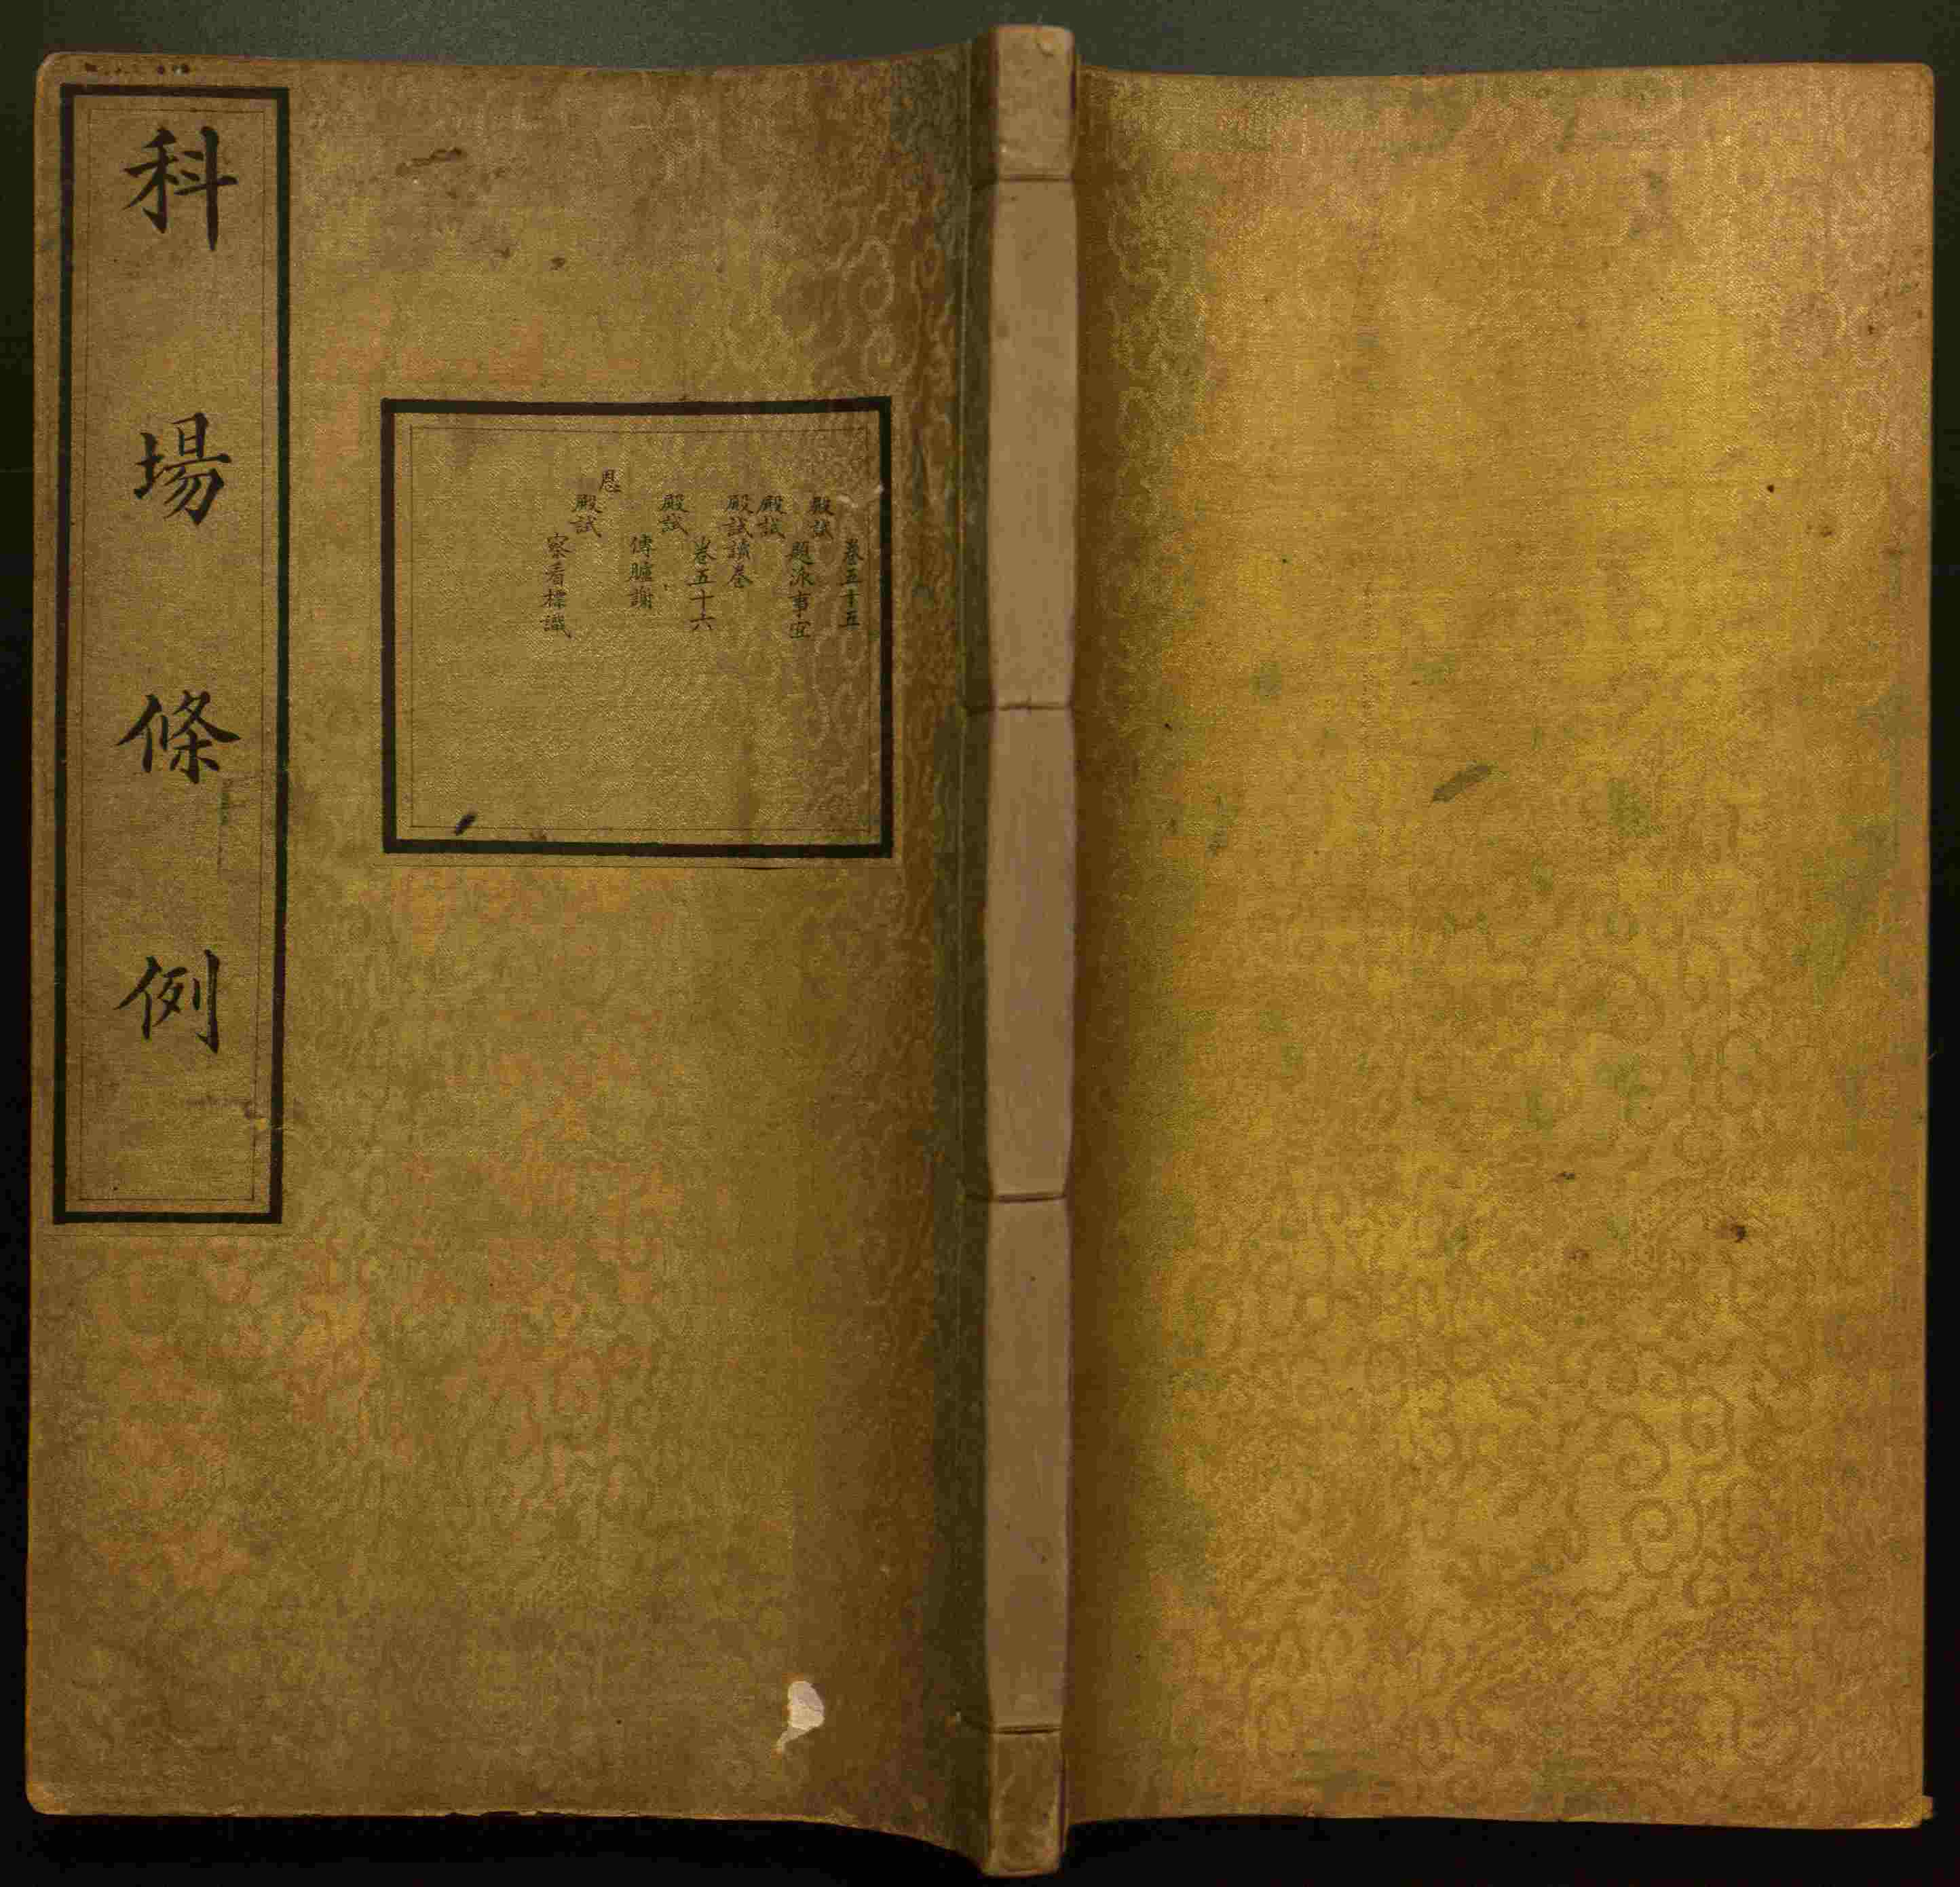 科場條例
卷五十五
殿試
題派事宜
殿試
殿試讀卷
卷五十六
殿試
傳臚謝
恩
殿試
察看標識